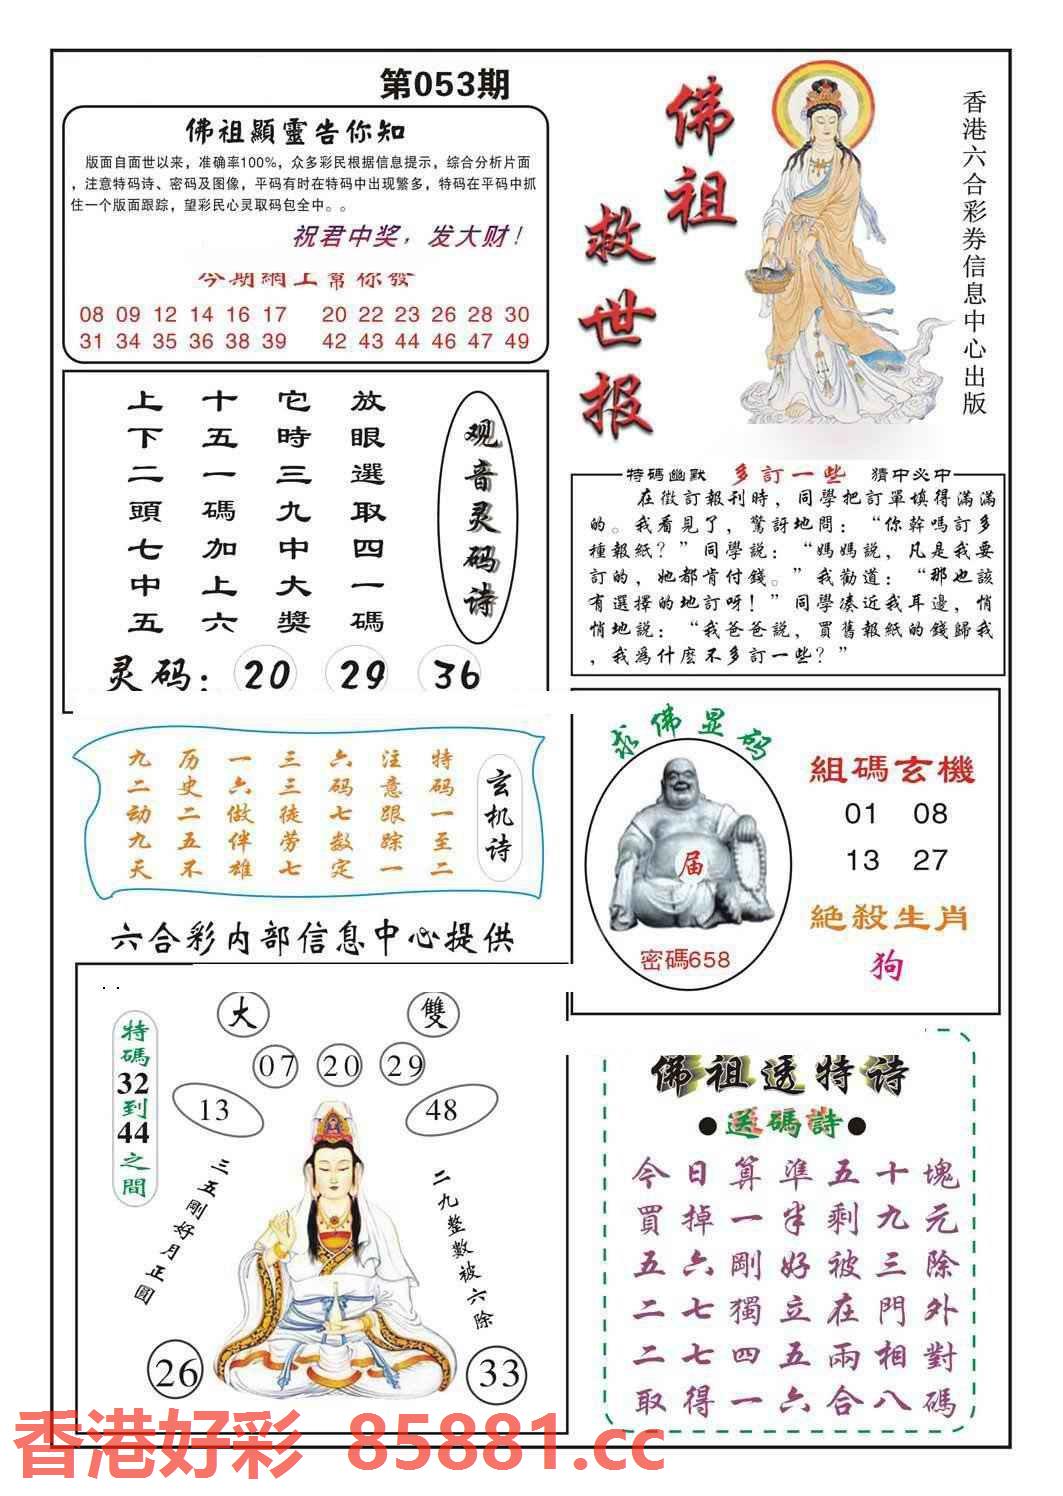 第053期
佛祖顯靈告你知
版面自面世以来，准确率100%，众多彩民根据信息提示，综合分析片面
，注意特码诗、密码及图像，平码有时在特码中出现繁多，特码在平码中抓
住一个版面跟踪，望彩民心灵取码包全中。。
祝君中奖，发大财！
今期網上幫你發
08 09 12 14 16 17 20 22 23 26 28 30
31 34 35 36 38 39 42 43 44 46 47 49
佛祖
救世报
香港六合彩券信息中心出版
观音灵码诗
放眼選取四一碼
它時三九中大獎
十五一碼加上六
上下二頭七中五
灵码：20 29 36
特碼幽默 多訂一些 猜中必中
在徵訂報刊時，同學把訂單填得滿滿
的。我看見了，驚訝地問：“你幹嗎訂多
種報紙？”同學説：“媽媽説，凡是我要
訂的，她都肯付錢。”我勸道：“那也該
有選擇的地訂呀！”同學凑近我耳邊，悄
悄地説：“我爸爸説，買舊報紙的錢歸我
，我爲什麽不多訂一些？”
玄机诗
特码一至二
注意跟踪一
六码七数定
三三徒劳七
一六做伴雄
历史二五不
九二动九天
求佛显码
届
密碼658
組碼玄機
01 08
13 27
絶殺生肖
狗
六合彩内部信息中心提供
特碼32到44之間
大 雙
07 20 29
13 48
三五剛好月正圓
二九整數被六除
26 33
佛祖透特诗
●送碼詩●
今日算準五十塊
買掉一半剩九元
五六剛好被三除
二七獨立在門外
二七四五兩相對
取得一六合八碼
香港好彩 85881.cc